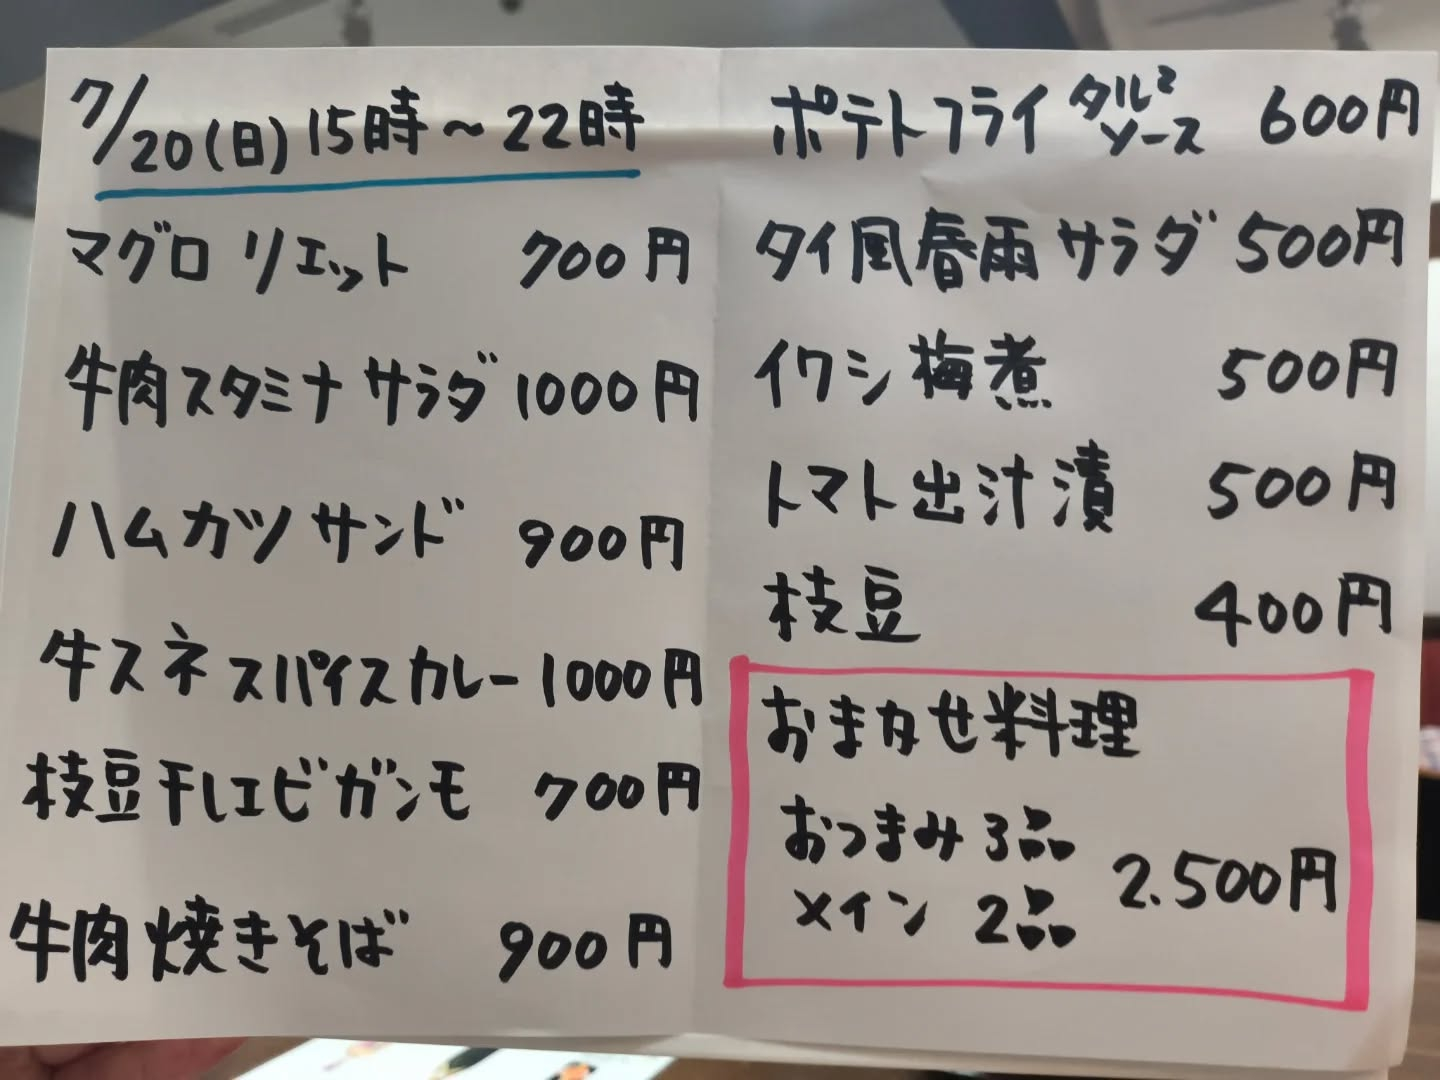 7/20(日)15時~22時
マグロリエット 700円
牛肉スタミナサラダ 1000円
ハムカツサンド 900円
牛スネスパイスカレー 1000円
枝豆干しエビガンモ 700円
牛肉焼きそば 900円
ポテトフライ タル²ソース 600円
タイ風春雨サラダ 500円
イワシ梅煮 500円
トマト出汁漬 500円
枝豆 400円
おまかせ料理
おつまみ3品
メイン 2品
2.500円